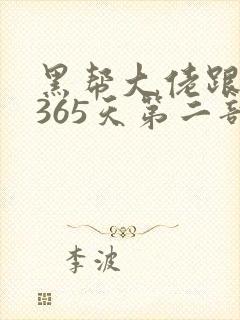 黑帮大佬跟
365天第二部
李波